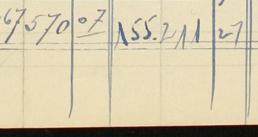 67 570 07 155.211 27